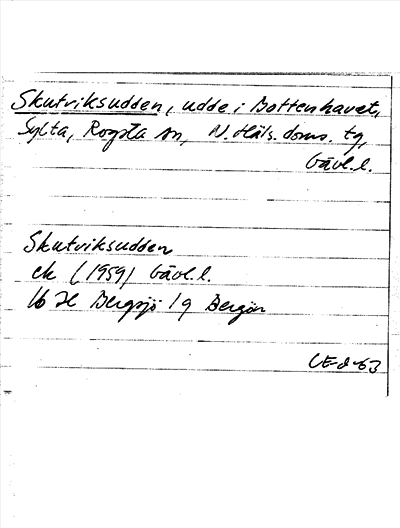 Skutviksudden, udde i Bottenhavet,
Sylta, Rogsta sn, N. Häls. doms. tg,
Gävl. l.
Skutviksudden
ek (1959) Gävl. l.
16 H Bergsjö 1g Bergön
CE-d-63